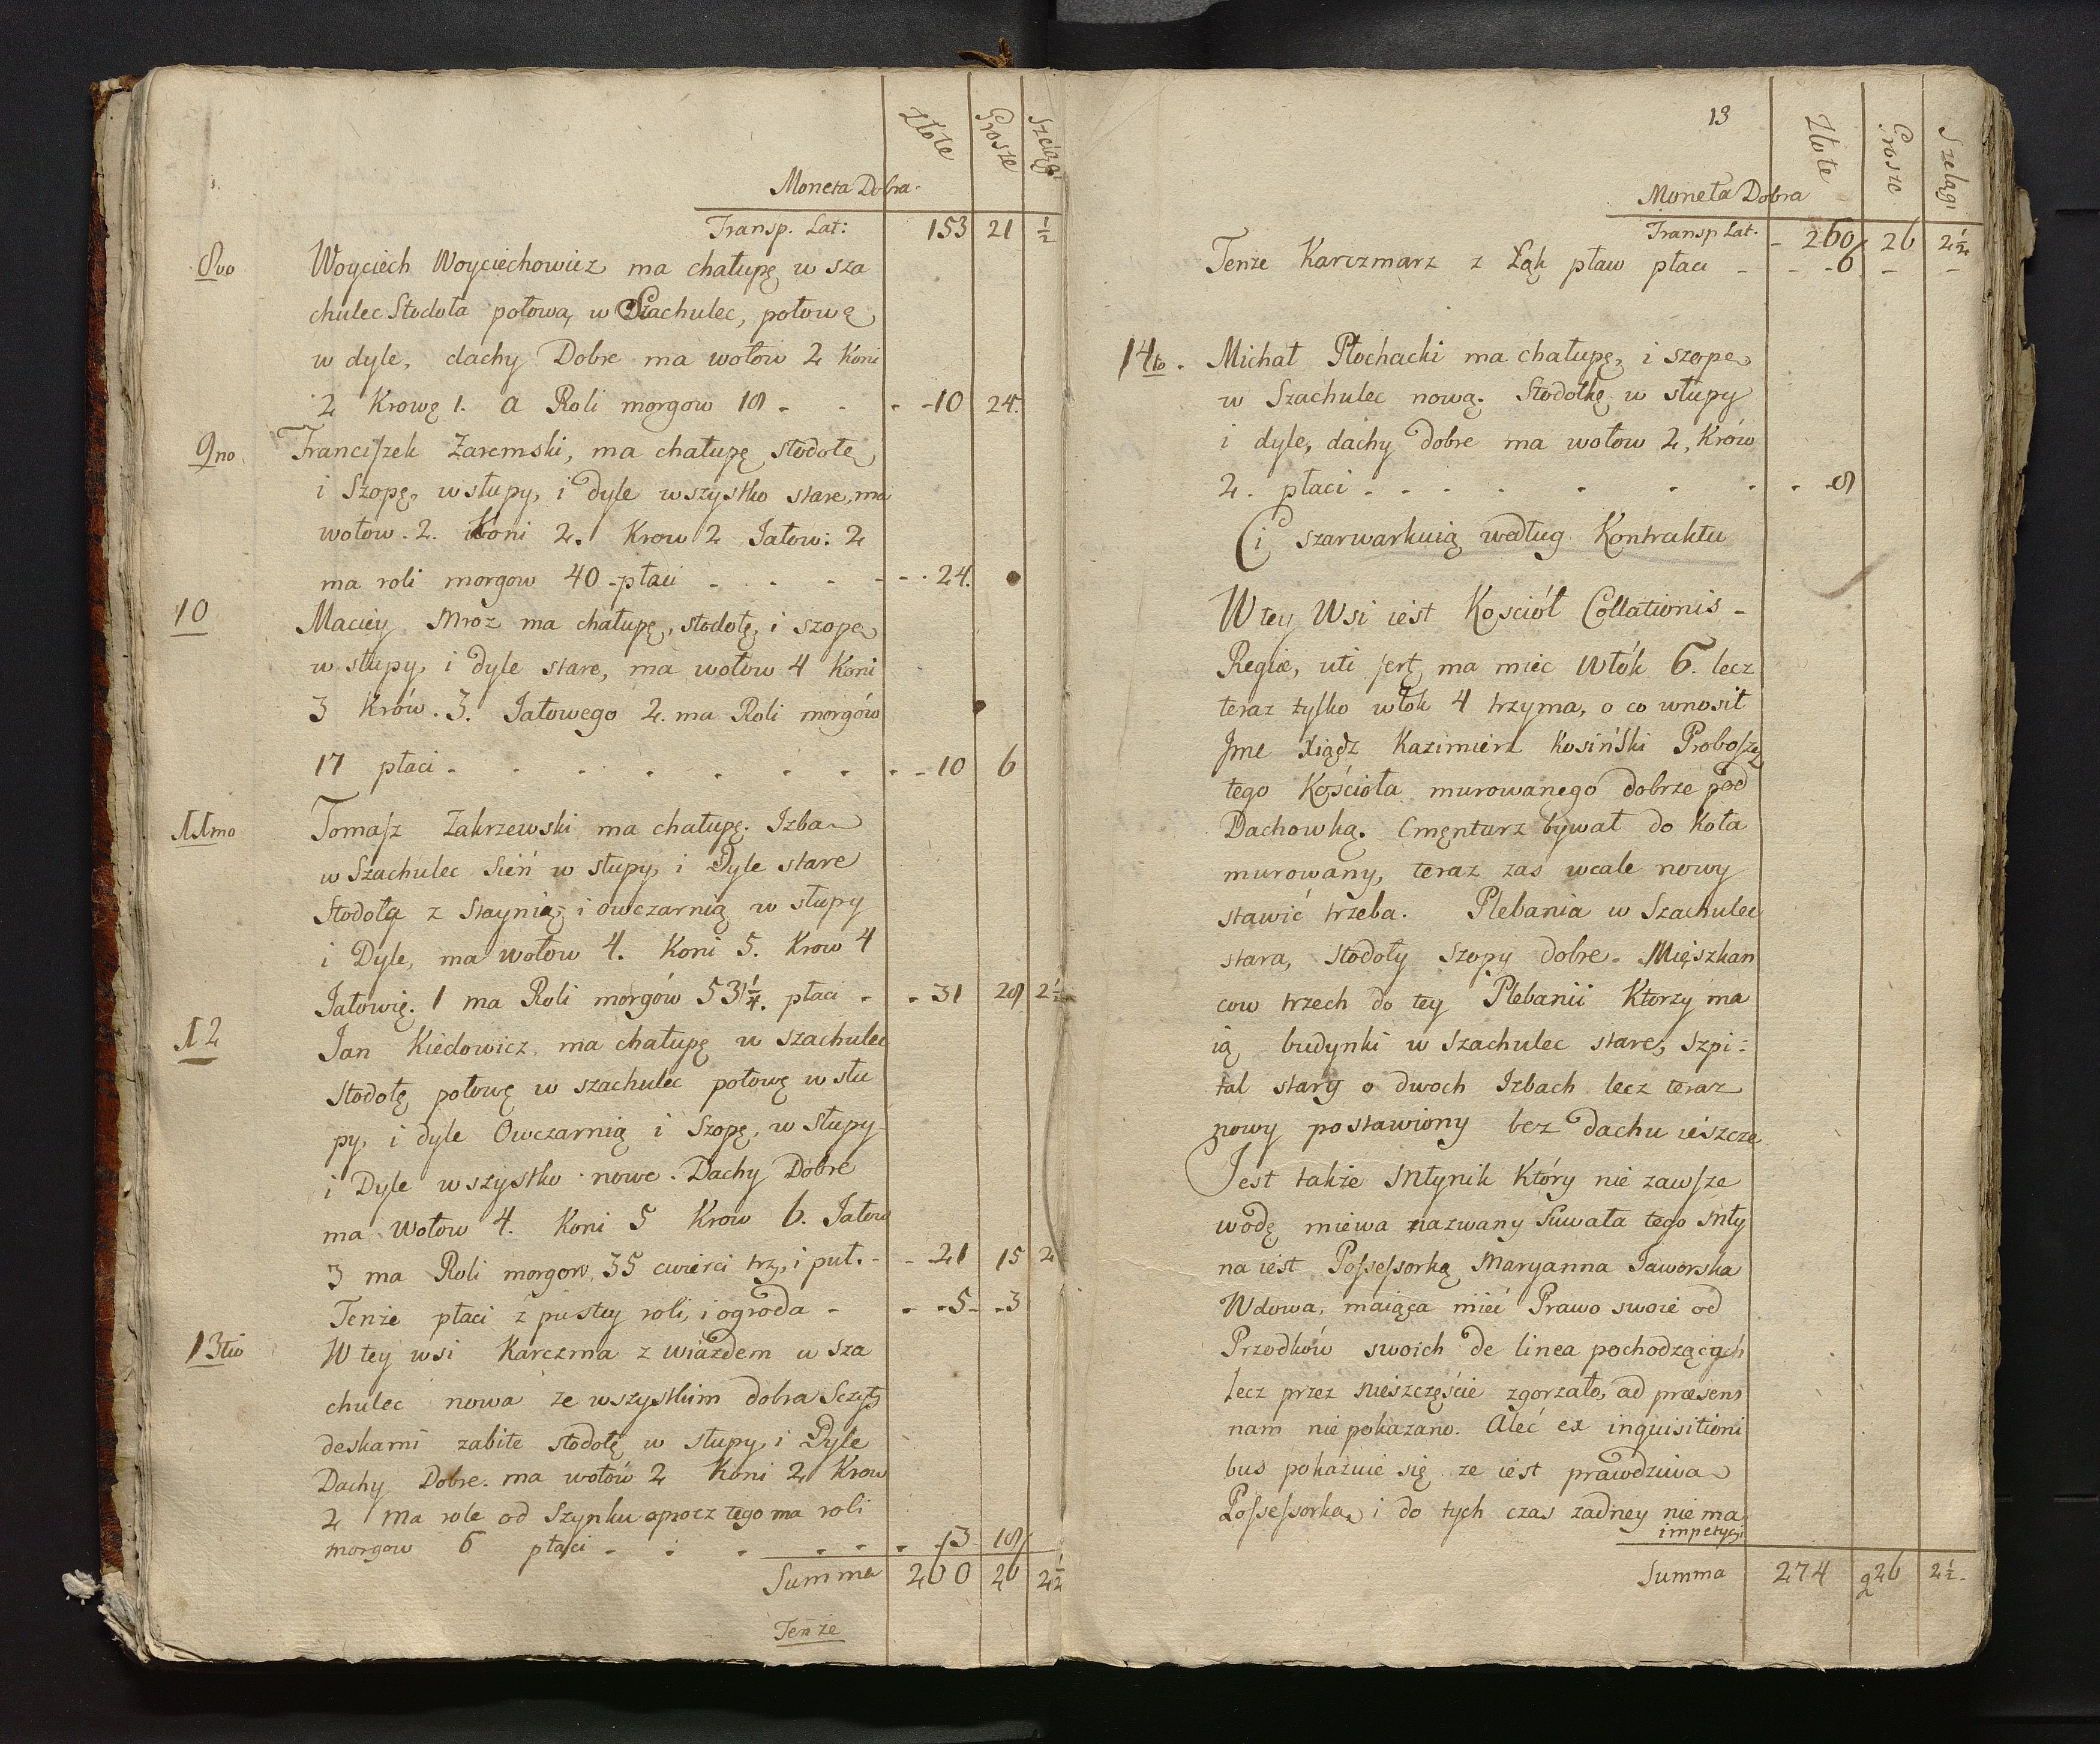 Złote Grosze Szelągi
Moneta Dobra
Transp. Lat: 153 21 ½
8vo Woyciech Woyciechowicz ma chałupę w sza
chulec Stodoła połowa, w Szachulec, połowę
w dyle, dachy Dobre ma wołow 2 Koni
2 Krowę 1. a Roli morgow 18 - - - 10 24.
9no Franciszek Zaremski, ma chałupę stodołę
i Szopę, w słupy, i dyle wszystko stare, ma
wołow. 2. Koni 2. Krow 2 Jałow: 2
ma roli morgow 40 - płaci - - - - 24.
10 Maciey Mroz ma chałupę, stodołę, i szopę
w słupy, i dyle stare, ma wołow 4 Koni
3 Krów. 3. Jałowego 2. ma Roli morgów
17 płaci - - - - - - - 10 6
11mo Tomasz Zakrzewski ma chałupę. Izba
w Szachulec Sień w słupy, i Dyle stare
Stodołą z Staynią, i owczarnią w słupy
i Dyle, ma wołow 4. Koni 5. Krow 4
Jałowię. 1 ma Roli morgów 53¼. płaci - - 31 28 2½
12 Jan Kiedowicz ma chałupę w szachulec
stodołę połowę w szachulec połowę w słu
py, i dyle Owczarnią i Szopę, w słupy
i Dyle wszystko nowe. Dachy Dobre
ma wołow 4. Koni 5 Krow 6. Jałow
3 ma Roli morgow 35 cwierci trz, i puł. - - 21 15 2
Tenże płaci z pustey roli, i ogroda - - - 5 - 3
13tio W tey wsi Karczma z wiazdem w sza
chulec nowa ze wszystkim dobra Sczyty
deskami zabite stodołę w słupy, i Dyle
Dachy Dobre. ma wołow 2 Koni 2 Krow
2 ma role od Szynku oprocz tego ma roli
morgow 6 płaci - - - - - 3 18
Summa 260 26 2½
Tenże
13
Złote Grosze Szelągi
Moneta Dobra
Transp Lat. - 260 26 2½
Tenże Karczmarz z Łąk pław płaci - - - 6 - -
14to. Michał Płochacki ma chałupę, i szopę
w Szachulec nową. Stodołkę w słupy
i dyle, dachy dobre ma wołow 2, Krów
2. płaci - - - - - - - - 8
Ci szarwarkuią według Kontraktu
W tey Wsi iest Kosciół Collationis -
Regiæ, uti fert, ma miec Włók 6. lecz
teraz tylko włok 4 trzyma, o co wnosił
Jme Xiądz Kazimierz Kosiński Proboszcz
tego Kościoła murowanego dobrze pod
Dachowką. Cmęntarz bywał do koła
murowany, teraz zas wcale nowy
stawić trzeba. Plebania w Szachulec
stara, stodoły szopy dobre. Mięszkan
cow trzech do tey Plebanii Ktorzy ma
ią budynki w Szachulec stare, szpi:
tal stary o dwoch Izbach lecz teraz
nowy postawiony bez dachu ieszcze
Jest także młynik Który nie zawsze
wodę miewa nazwany Suwała tego mły
na iest Possessorką Maryanna Jaworska
Wdowa, maiąca mieć Prawo swoie od
Przodków swoich de linea pochodzących
lecz przez nieszczęście zgorzało, ad præsens
nam nie pokazano. Aleć ex inquisitioni
bus pokazuie się ze iest prawdziwa
Possessorka, i do tych czas zadney nie ma
impetycyi
Summa 274 26 2½.